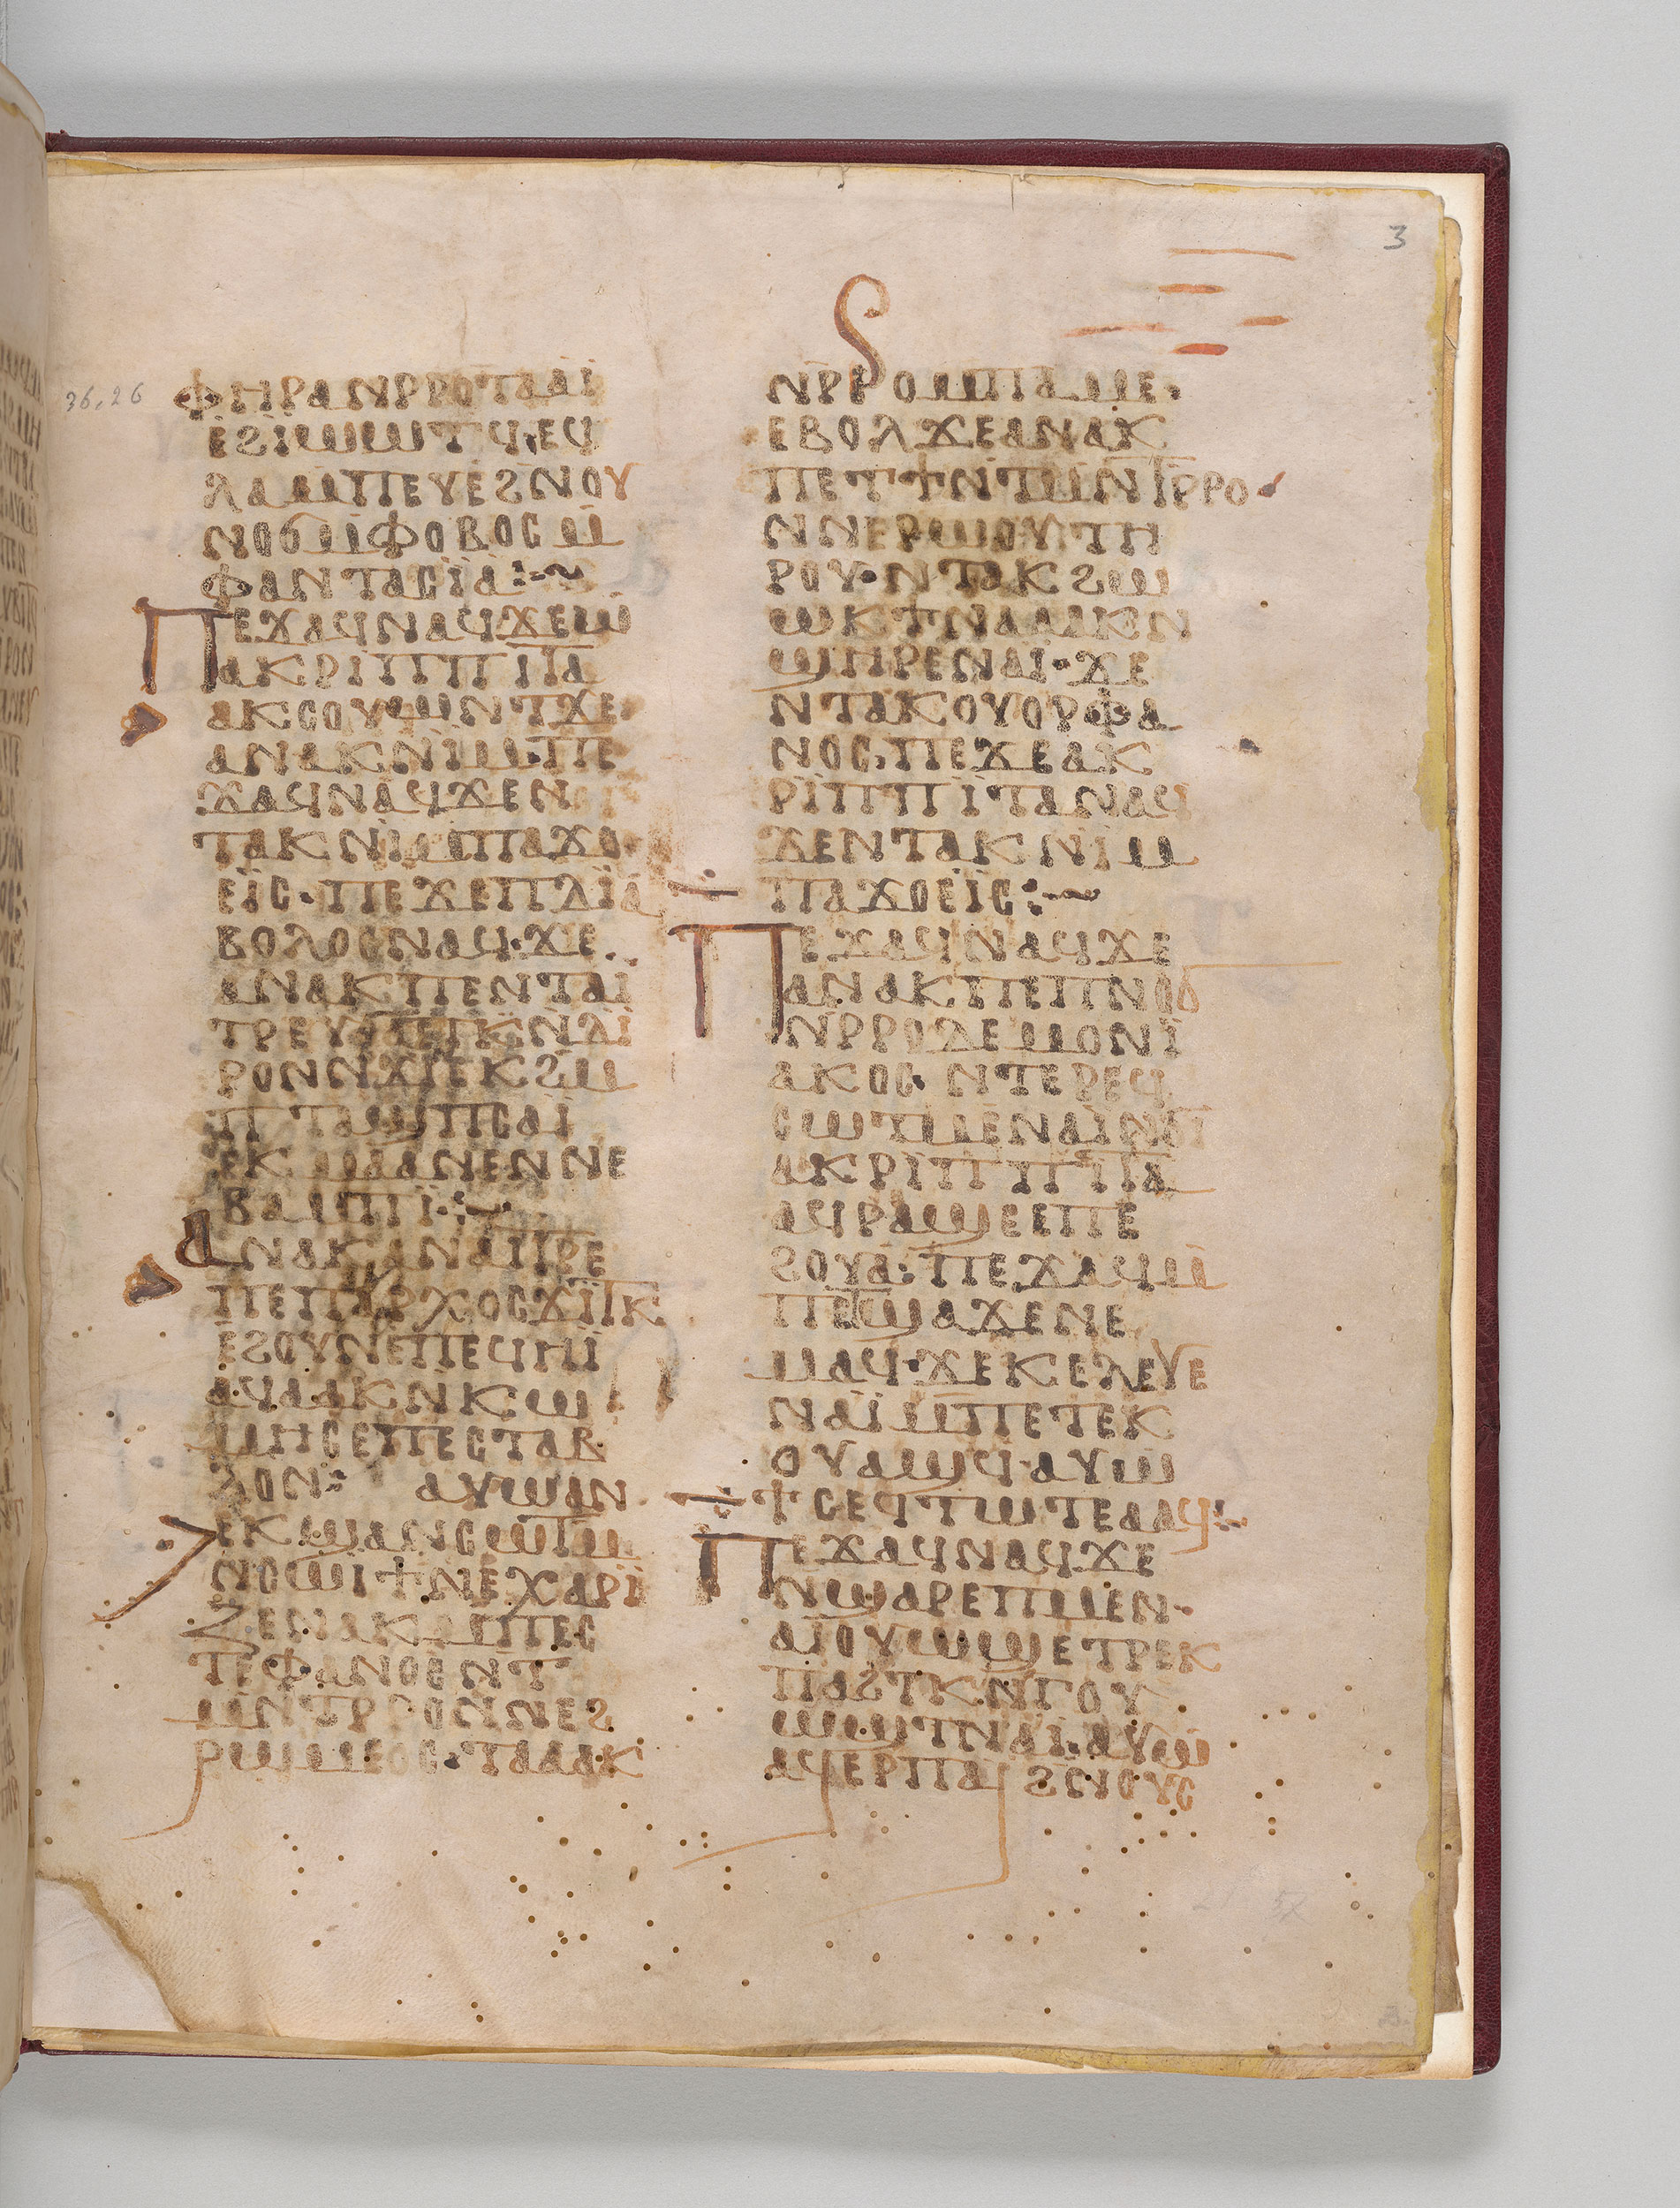 3
36,26
ϥⲏⲣⲁⲛⲣⲣⲟⲧⲁⲁⲓ
ⲉϩⲓ̈ⲱⲱⲧϥ·ⲉϥ
ⲗⲁⲙⲡⲉⲩⲉϩⲛⲟⲩ
ⲛⲟϭⲙⲫⲟⲃⲟⲥⲙ
ⲫⲁⲛⲧⲁⲥⲓ̈ⲁ:·~
ⲡⲉϫⲁϥⲛⲁϥϫⲉⲱ
ⲁⲕⲣⲓⲡⲡⲓⲧⲁ
ⲁⲕⲥⲟⲩⲱⲛⲧϫⲉ
ⲁⲛⲁⲕⲛⲓⲙ·ⲡⲉ
ϫⲁϥⲛⲁϥϫⲉⲛ
ⲧⲁⲕⲛⲓⲙⲡⲁϫⲟ
ⲉⲓ̈ⲥ·ⲡⲉϫⲉⲡⲇⲓⲁ
ⲃⲟⲗⲟⲥⲛⲁϥ·ϫⲉ
ⲁⲛⲁⲕⲡⲉⲛⲧⲁⲓ
ⲣⲟⲛⲛϫⲓⲧⲕϩⲙ
ⲡⲧⲁϣⲡⲥⲁⲓ̈
ⲉⲕⲙⲁⲁⲛⲉⲛⲛⲉ
ⲃⲁⲙⲡⲓ·:~
ⲁⲛⲁⲕⲁⲛⲁⲓⲧⲣⲉ
ⲡⲉⲡⲁⲣⲭⲟⲥϫⲓⲧⲕ
ⲉϩⲟⲩⲛⲉⲡⲉϥⲏⲓ
ⲁϥⲁⲁⲕⲛⲕⲱ
ⲙⲏⲥⲉⲡⲉⲥⲧⲁⲃ
ⲗⲟⲛ: ⲁⲩⲱⲁⲛ
ⲉⲕϣⲁⲛⲥⲱⲧⲙ
ⲛⲥⲱⲓϯⲛⲉⲭⲁⲣⲓ
ⲍⲉⲛⲁⲕⲙⲡⲉⲥ
ⲧⲉⲫⲁⲛⲟⲥⲛⲧ
ⲙⲛⲧⲣⲣⲟⲛⲛⲉϩ
ⲣⲱⲙⲉⲟⲥ·ⲧⲁⲁⲁⲕ
ⲛⲣⲣⲟⲙⲡⲁⲙⲉ·
ⲉⲃⲟⲗϫⲉⲁⲛⲁⲕ
ⲡⲉⲧϯⲛⲧⲙⲛⲧⲣⲣⲟ
ⲛⲛⲉⲣⲱⲟⲩⲧⲏ
ⲣⲟⲩ·ⲛⲧⲁⲕϩⲱ
ⲱⲕϯⲛⲁⲁⲁⲕⲛ
ϣⲏⲣⲉⲛⲁⲓ̈·ϫⲉ
ⲛⲧⲁⲕⲟⲩⲟⲣⲫⲁ
ⲛⲟⲥ·ⲡⲉϫⲉⲁⲕ
ⲣⲓⲡⲡⲓⲧⲁⲛⲁϥ
ϫⲉⲛⲧⲁⲕⲛⲓⲙ
ⲡⲁϫⲟⲉⲓⲥ:·~
ⲡⲉϫⲁϥⲛⲁϥϫⲉ
ⲁⲛⲁⲕⲡⲉⲡⲛⲟϭ
ⲛⲣⲣⲟⲇⲉⲙⲟⲛⲓ
ⲁⲕⲟⲥ·ⲛⲧⲉⲣⲉϥ
ⲥⲱⲧⲙⲉⲛⲁⲓ̈ⲛϭⲓ
ⲁⲕⲣⲓⲡⲡⲓⲧⲁ
ⲁϥⲣⲁϣⲉⲉⲡⲉ
ϩⲟⲩⲁ:ⲡⲉϫⲁϥⲙ
ⲡⲉⲧϣⲁϫⲉⲛⲉ
ⲙⲁϥ·ϫⲉⲕⲉⲗⲉⲩⲉ
ⲛⲁⲓ̈ⲙⲡⲉⲧⲉⲕ
ⲟⲩⲁϣϥ·ⲁⲩⲱ
ϯⲥⲉϥⲧⲱⲧⲉⲁⲁϥ:~
ⲡⲉϫⲁϥⲛⲁϥϫⲉ
ⲛϣⲁⲣⲉⲡⲙⲉⲛ·
ⲁⲓⲟⲩⲱϣⲉⲧⲣⲉⲕ
ⲡⲁϩⲧⲕⲛⲅⲟⲩ
ⲱϣⲧⲛⲁⲓ̈·ⲁⲩⲱ
ⲁϥⲉⲣⲡⲁⲓϩⲛⲟⲩⲥ